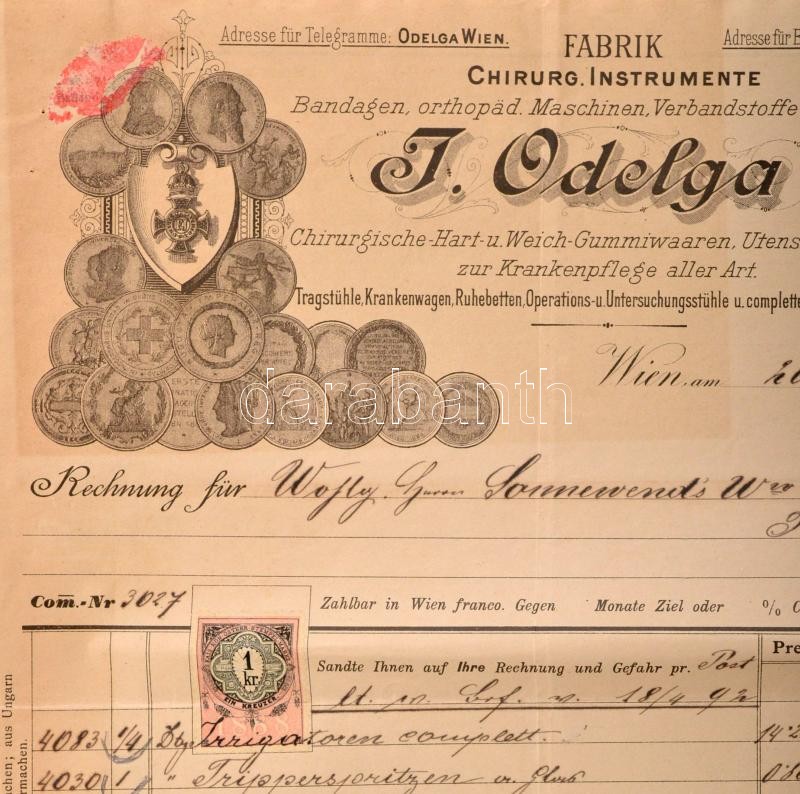 Adresse für Telegramme: ODELGA WIEN.
FABRIK
Adresse für B
CHIRURG. INSTRUMENTE
Bandagen, orthopäd. Maschinen, Verbandstoffe
J. Odelga
Chirurgische-Hart-u. Weich-Gummiwaaren, Utens
zur Krankenpflege aller Art.
Tragstühle, Krankenwagen, Ruhebetten, Operations-u. Untersuchungsstühle u. complette
Wien, am 20
darabanth
Rechnung für Wohlg. Herrn Sonnewend's Wwe
Com.-Nr 3027
Zahlbar in Wien franco. Gegen Monate Ziel oder % C
1 kr.
EIN KREUZER
Pre
Sandte Ihnen auf Ihre Rechnung und Gefahr pr. Post
lt. w. Brf. v. 18/4 92
4083 1/4 Dtz Irrigatoren complett.
4030 1 " Tripperspritzen a. Glas
chen; aus Ungarn
rmachen.